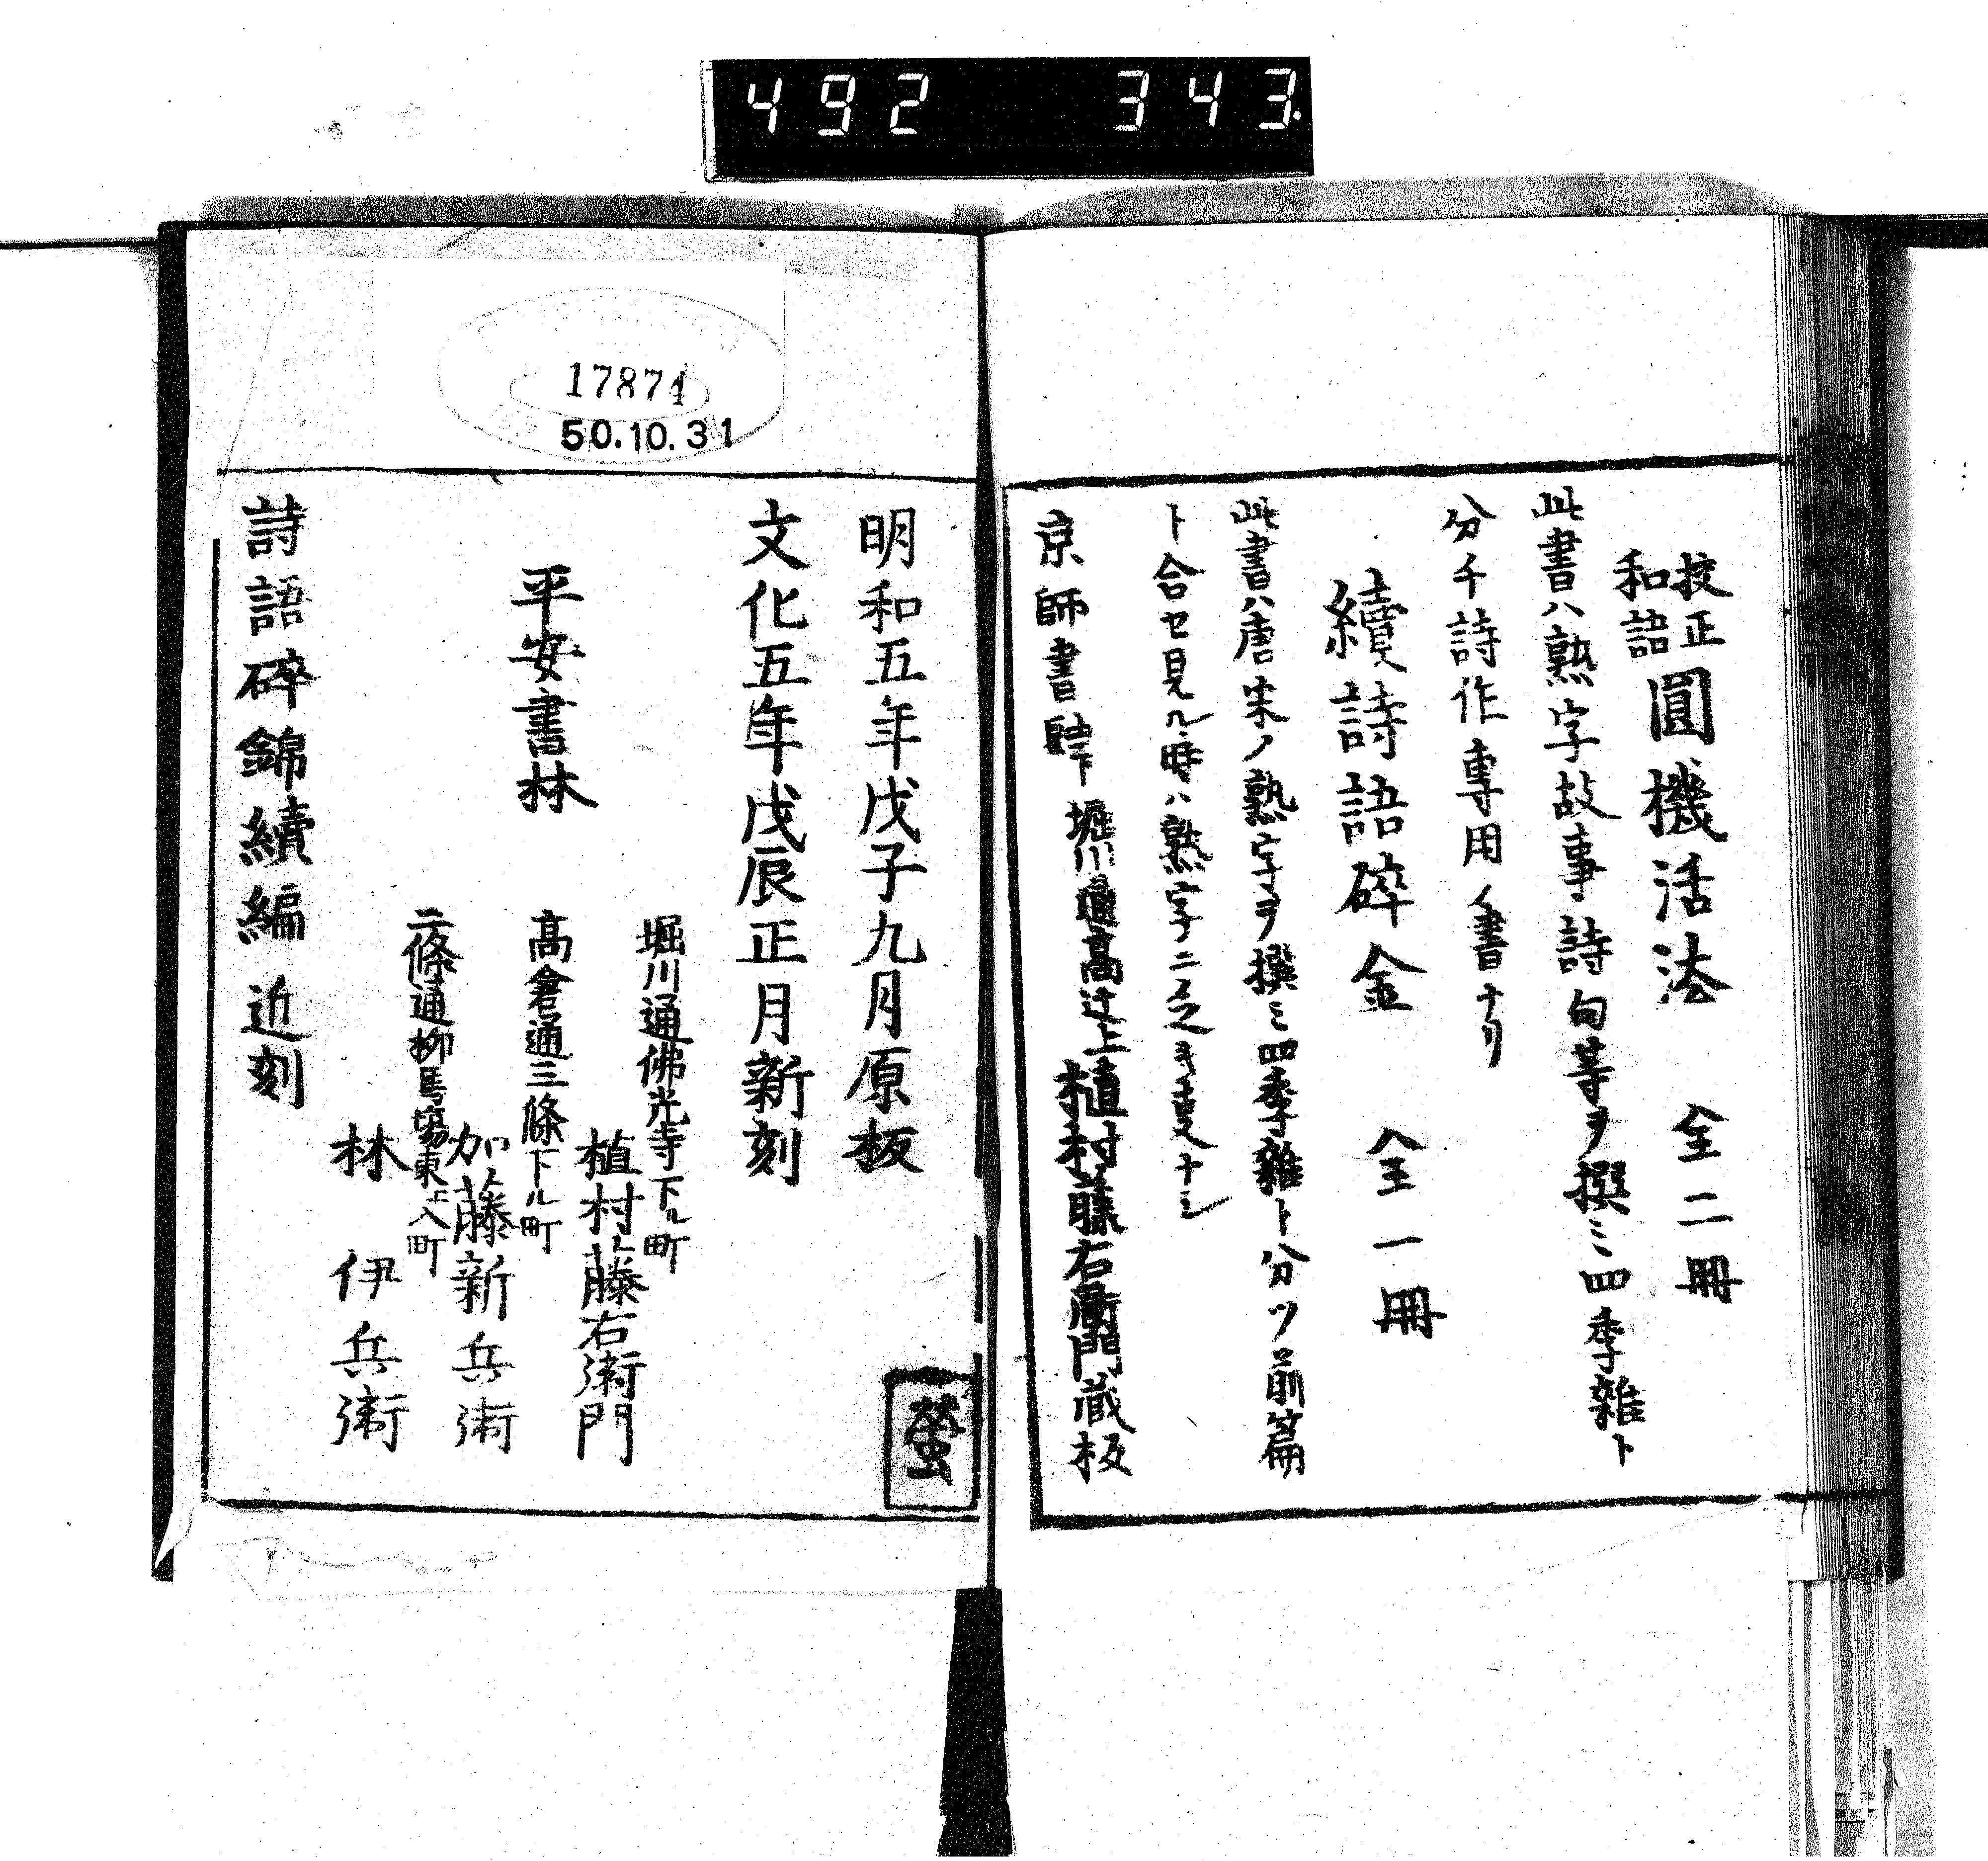 492 343.
校正
和語
圓機活法 全二冊
此書ハ熟字故事詩句等ヲ撰ミ四季雜ト
分チ詩作專用ノ書ナリ
續詩語碎金 全一冊
此書ハ唐宋ノ熟字ヲ撰ミ四季雜ト分ツ前篇
ト合セ見ル時ハ熟字ニ乏キ憂ナシ
京師書肆 堀川通高辻上 植村藤右衛門蔵板
明和五年戊子九月原板
文化五年戊辰正月新刻
平安書林
堀川通佛光寺下ル町
植村藤右衛門
高倉通三條下ル町
加藤新兵衛
二條通柳馬場東ヘ入町
林 伊兵衛
詩語碎錦續編 近刻
17874
50.10.31